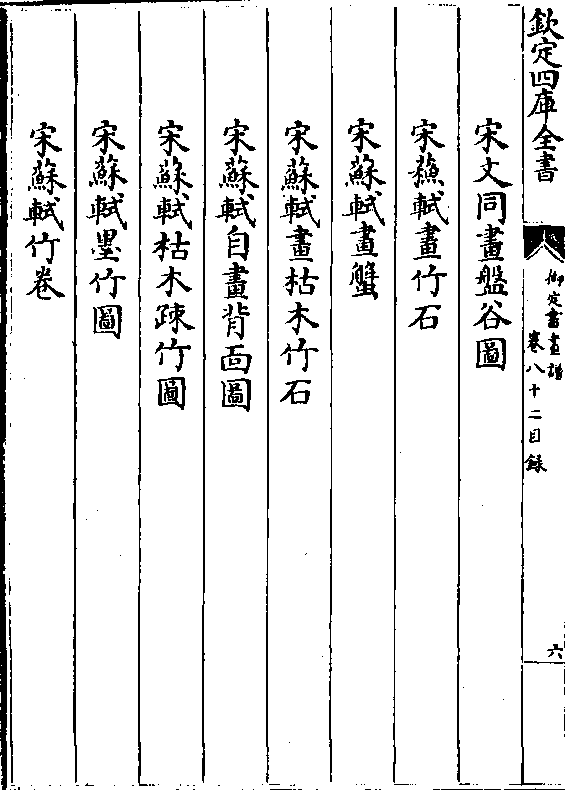 欽定四庫全書
御定書畫譜
卷八十二目錄
六
宋文同畫盤谷圖
宋蘓軾畫竹石
宋蘇軾畫蟹
宋蘇軾畫枯木竹石
宋蘇軾自畫背面圖
宋蘇軾枯木疎竹圖
宋蘇軾墨竹圖
宋蘇軾竹卷